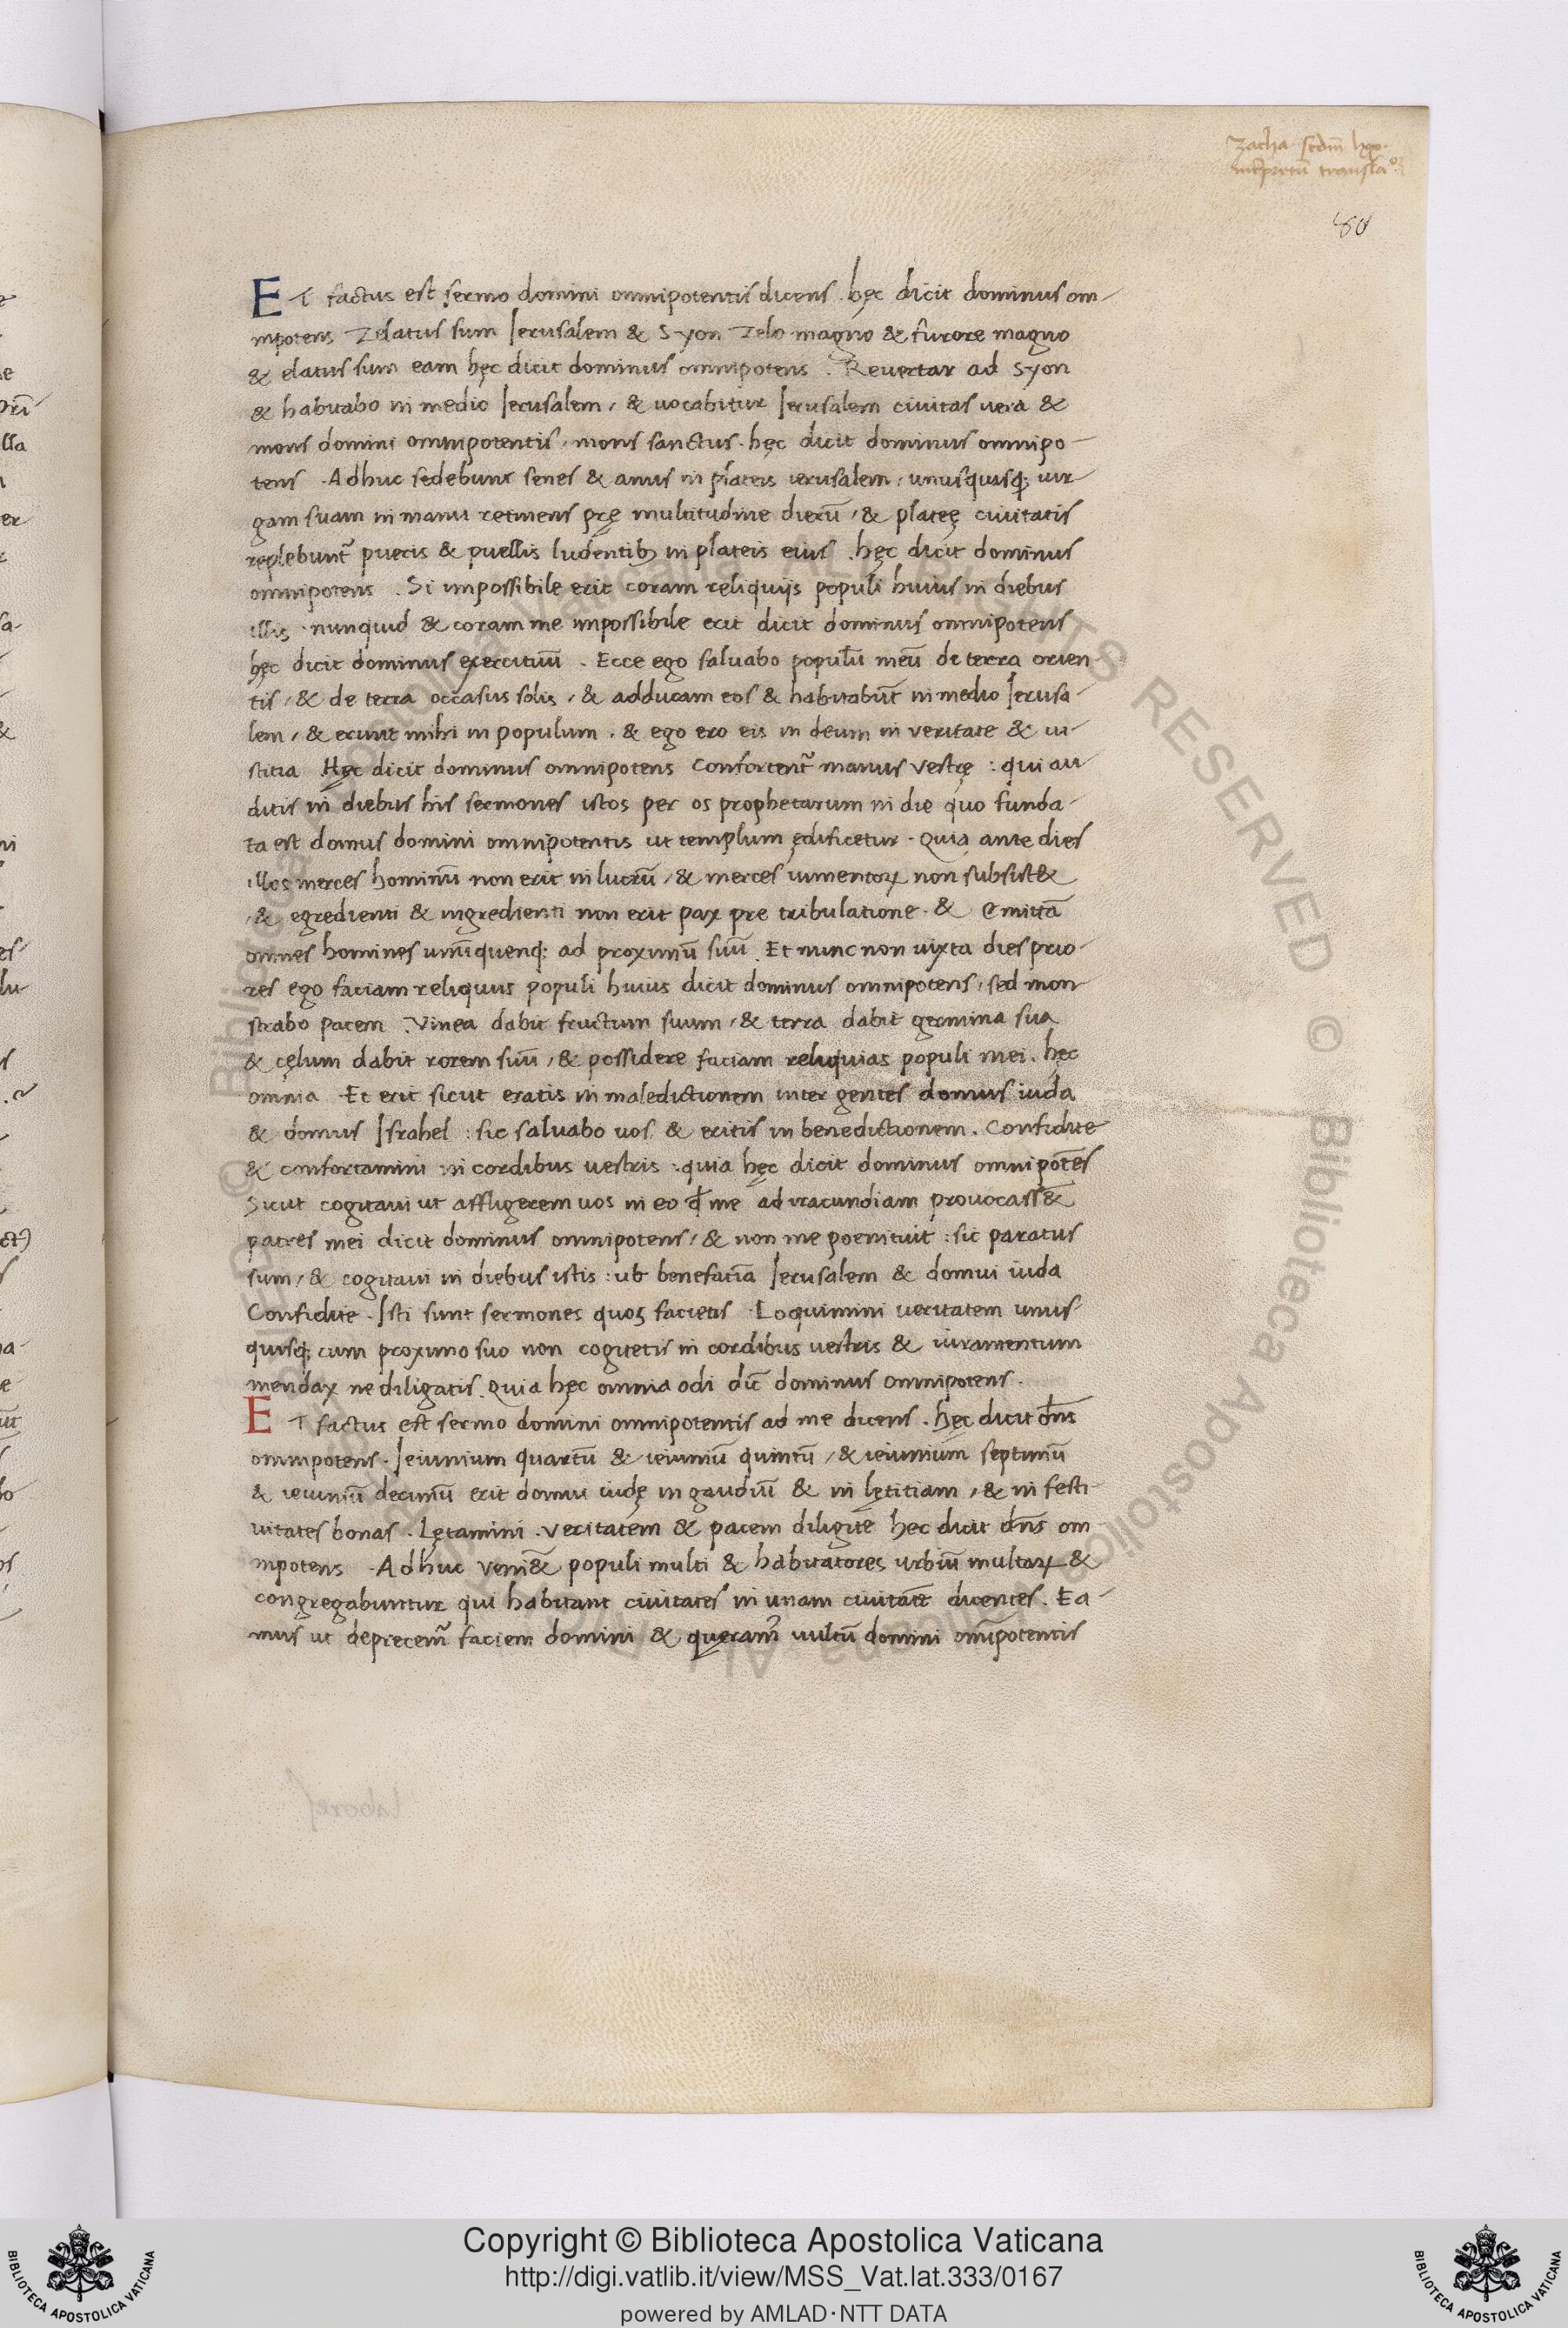 Zacha scdm
80
ET factus est sermo domini omnipotentis dicens. hęc dicit dominus om-
nipotens Zelatus sum Jerusalem & Syon zelo magno & furore magno
& elatus sum eam hęc dicit dominus omnipotens. Revertar ad Syon
& habitabo in medio Jerusalem, & uocabitur Jerusalem ciuitas uera &
mons domini omnipotentis, mons sanctus. hęc dicit dominus omnipo-
tens. Adhuc sedebunt senes & anus in plateis ierusalem, unusquisq; uir-
gam suam in manu retinens prę multitudine dierū, & plateę ciuitatis
replebunt̃ pueris & puellis ludentibꝫ in plateis eius. hęc dicit dominus
omnipotens. Si impossibile erit coram reliquijs populi huius in diebus
illis. nunquid & coram me impossibile erit dicit dominus omnipotens
hęc dicit dominus exercituū. Ecce ego saluabo populū meū de terra orien-
tis, & de terra occasus solis, & adducam eos & habitabūt in medio Jerusa-
lem, & erunt mihi in populum. & ego ero eis in deum in veritate & iu-
stitia Hęc dicit dominus omnipotens Confortent̃ manus vestrę: qui au
ditis in diebus his sermones istos per os prophetarum in die quo funda-
ta est domus domini omnipotentis ut templum ędificetur. Quia ante dies
illos merces hominū non erit in lucrū, & merces iumentoꝝ non subsist&
,& egredienti & ingredienti non erit pax pre tribulatione. & emittā
omnes homines unūquenq; ad proximū suū. Et nunc non iuxta dies prio-
res ego faciam reliquiis populi huius dicit dominus omnipotens, sed mon
strabo pacem. Vinea dabit fructum suum, & terra dabit germina sua
& cęlum dabit rorem suū, & possidere faciam reliquias populi mei. hęc
omnia. Et erit sicut eratis in maledictionem inter gentes domus iuda
& domus Israhel: sic saluabo uos & eritis in benedictionem. Confidite
& confortamini in cordibus uestris: quia hęc dicit dominus omnipotēs
Sicut cogitaui ut affligerem uos in eo ꝙ me ad iracundiam prouocass&̄
patres mei dicit dominus omnipotens, & non me poenituit: sic paratus
sum, & cogitaui in diebus istis: ut benefaciā Jerusalem & domui iuda
Confidite. Isti sunt sermones quos facietis. Loquimini ueritatem unus
quisq; cum proximo suo non cogitetis in cordibus uestris & iuramentum
mendax ne diligatis. Quia hęc omnia odi dic̄ dominus omnipotens.
ET factus est sermo domini omnipotentis ad me dicens. hęc dicit dn̄s
omnipotens. Jeiunium quartū & ieiuniū quintū, & ieiunium septimū
& ieiuniū decimū erit domui iudę in gaudiū & in lętitiam, & in festi-
uitates bonas. Lętamini. veritatem & pacem diligite hec dicit dn̄s om
nipotens. Adhuc veni&̄ populi multi & habitatores urbiū multaꝝ &
congregabuntur qui habitant ciuitates in unam ciuitatē dicentes. Ea-
mus ut deprecem̃ faciem domini & queram᷒ uultū domini om̄ipotentis
labores
Copyright © Biblioteca Apostolica Vaticana
http://digi.vatlib.it/view/MSS_Vat.lat.333/0167
powered by AMLAD·NTT DATA